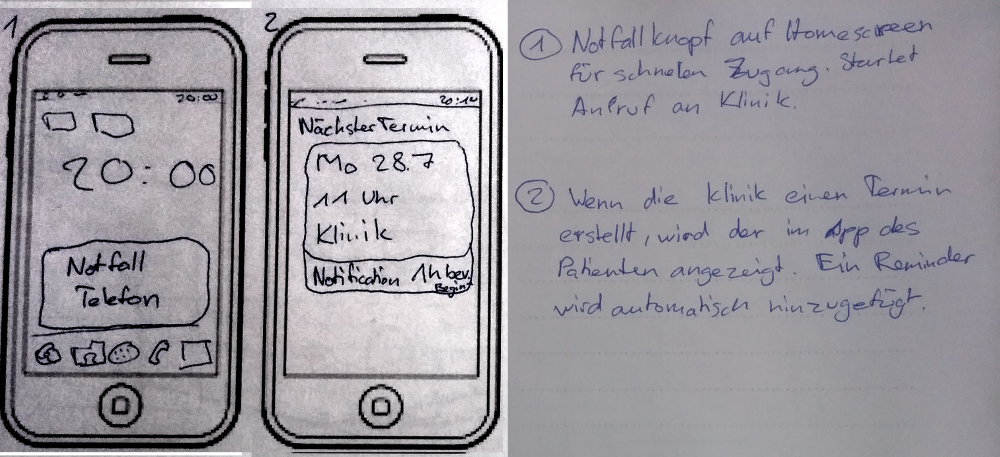 1
20:00
20:00
Notfall
Telefon
2
20:10
Nächster Termin
Mo 28.7
11 Uhr
Klinik
Notification 1h bev.
Beginn
① Notfallknopf auf Homescreen
für schnellen Zugang. Startet
Anruf an Klinik.
② Wenn die Klinik einen Termin
erstellt, wird der im App des
Patienten angezeigt. Ein Reminder
wird automatisch hinzugefügt.